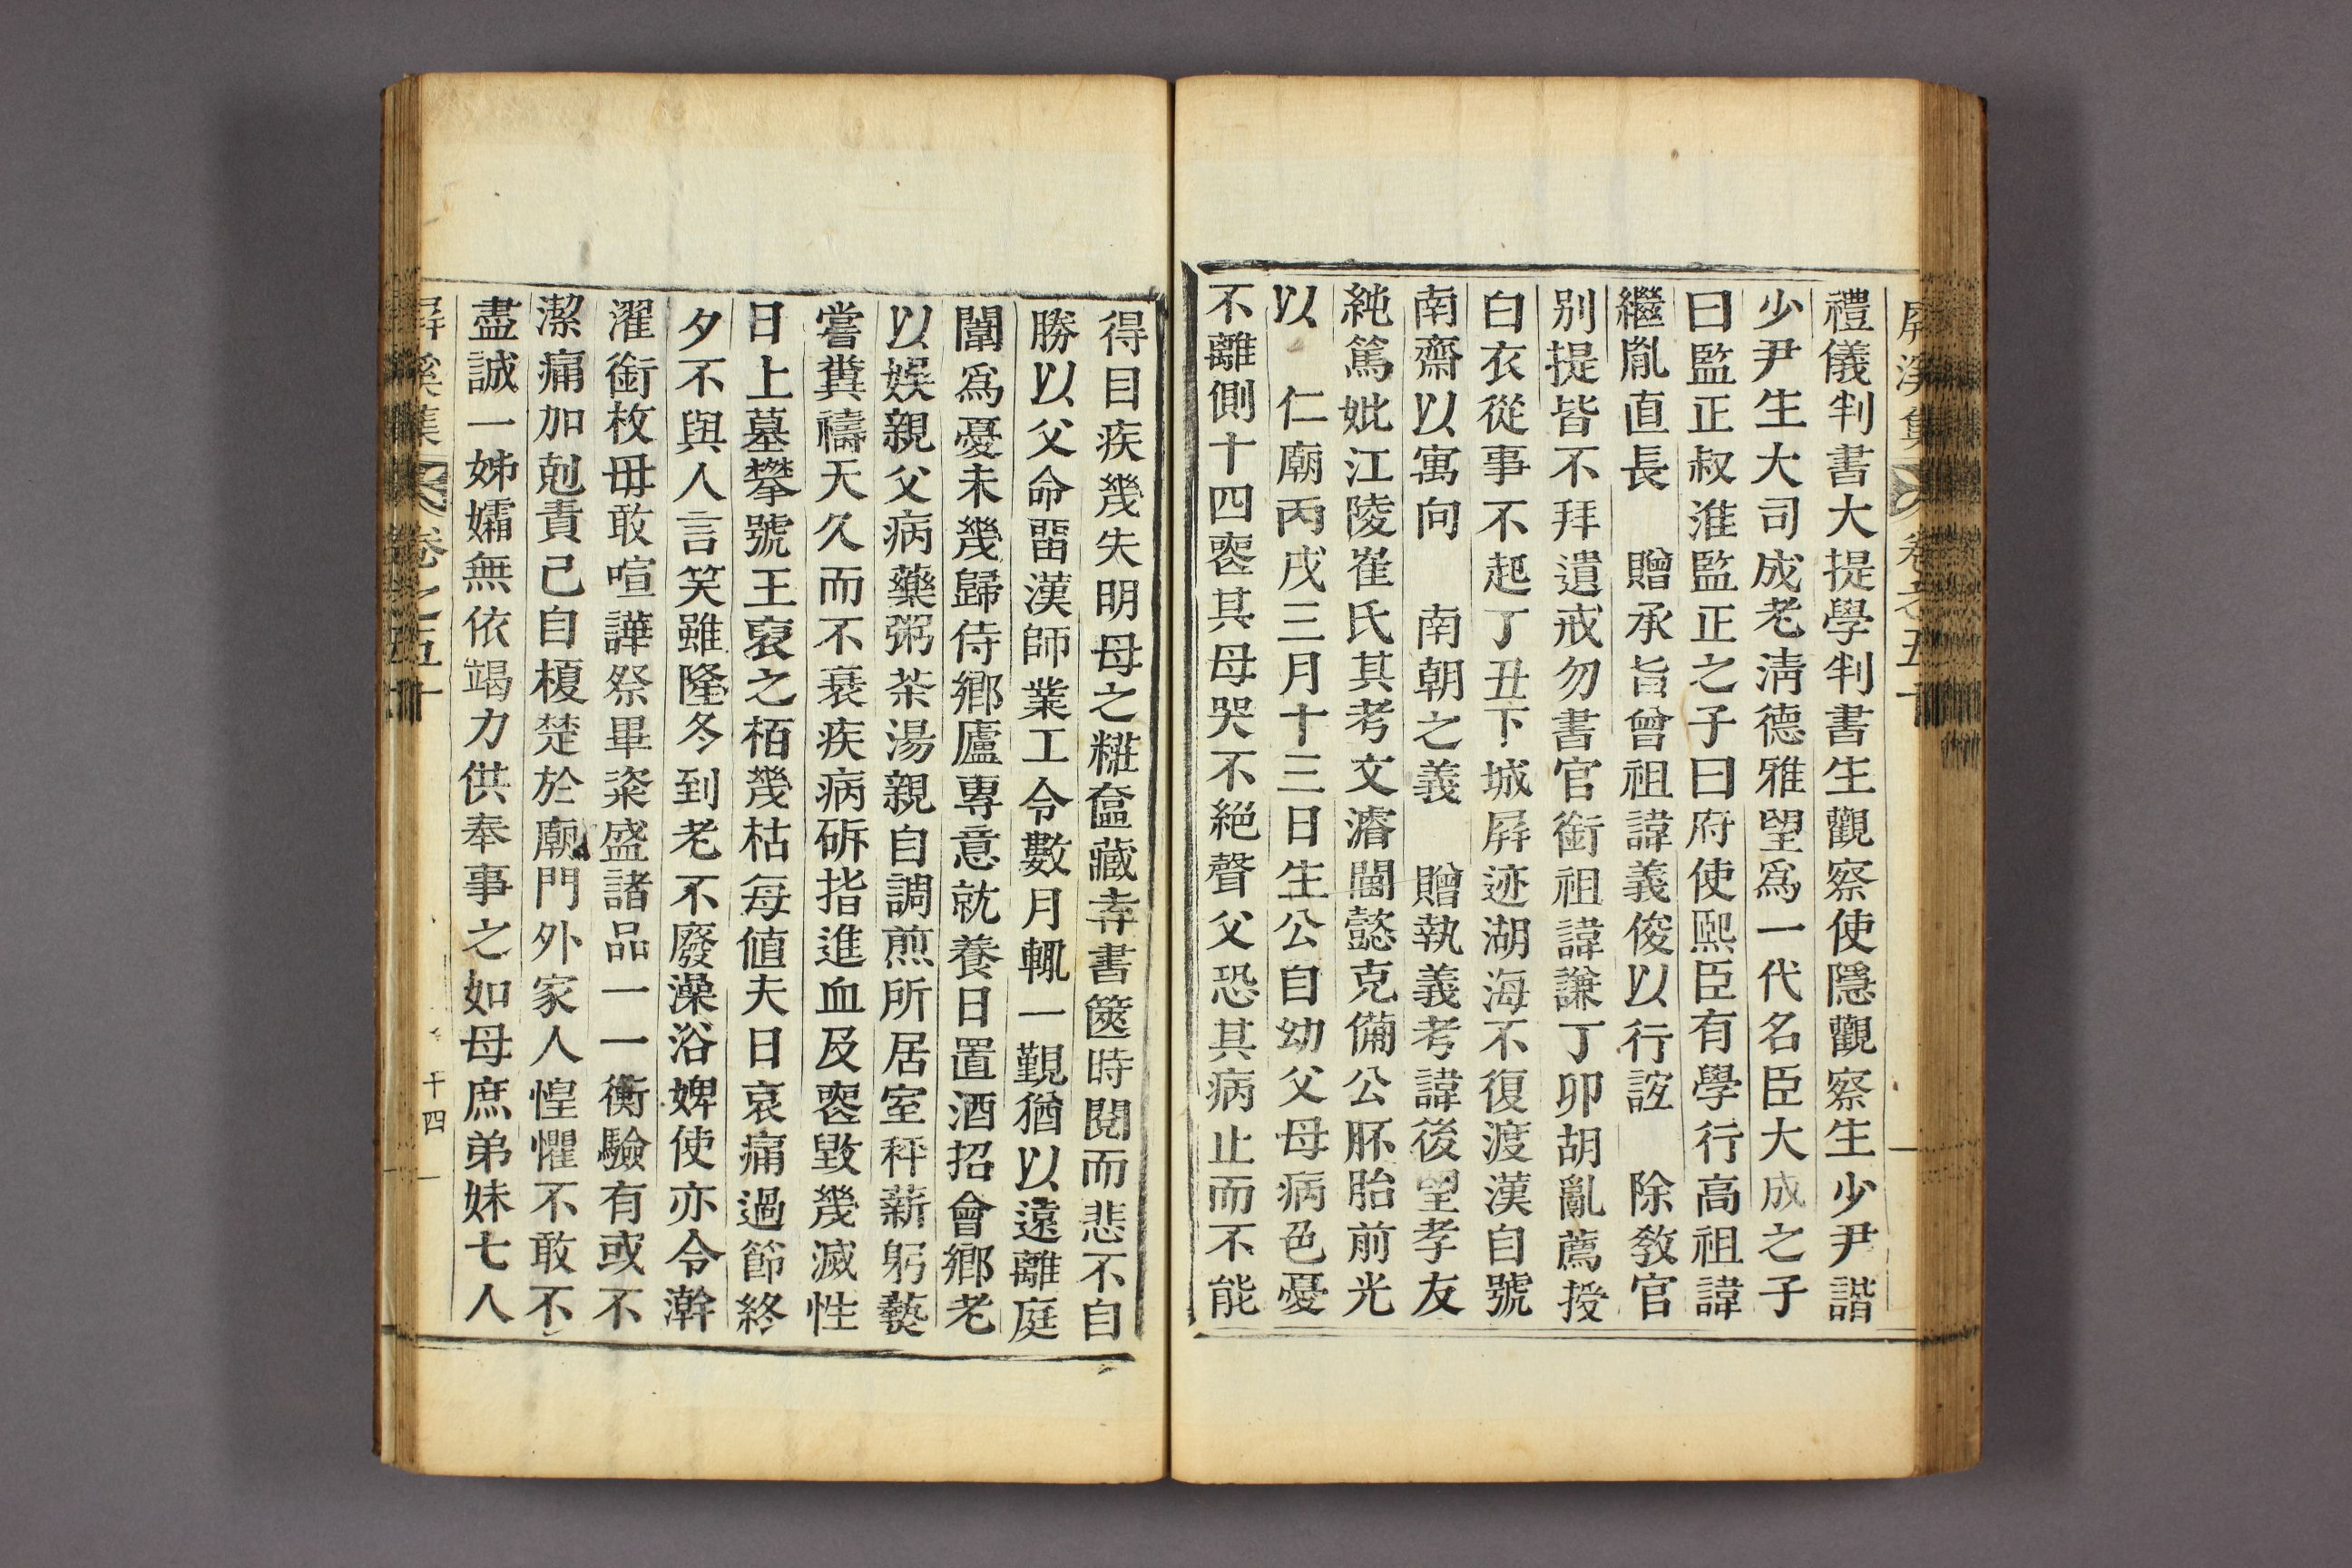 屛溪集 卷之五十
禮儀判書大提學判書生觀察使隱觀察生少尹諧
少尹生大司成老淸德雅望爲一代名臣大成之子
曰監正叔淮監正之子曰府使熙臣有學行高祖諱
繼胤直長 贈承旨曾祖諱義俊以行誼 除敎官
别提皆不拜遺戒勿書官銜祖諱謙丁卯胡亂薦授
白衣從事不起丁丑下城屛迹湖海不復渡漢自號
南齋以寓向 南朝之義 贈執義考諱後望孝友
純篤妣江陵崔氏其考文濬閫懿克備公胚胎前光
以 仁廟丙戌三月十三日生公自幼父母病色憂
不離側十四喪其母哭不絶聲父恐其病止而不能
得目疾幾失明母之糚奩藏弆書篋時閱而悲不自
勝以父命留漢師業工令數月輒一覲猶以遠離庭
闈爲憂未幾歸侍鄕廬專意就養日置酒招會鄕老
以娛親父病藥粥茶湯親自調煎所居室秤薪躬爇
嘗糞禱天久而不衰疾病斫指進血及喪毀幾滅性
日上墓攀號王裒之栢幾枯每値夫日哀痛過節終
夕不與人言笑雖隆冬到老不廢澡浴婢使亦令澣
濯銜枚毋敢喧譁祭畢粢盛諸品一一衡驗有或不
潔痛加剋責己自榎楚於廟門外家人惶懼不敢不
盡誠一姊孀無依竭力供奉事之如母庶弟妹七人
屛溪集 卷之五十 十四